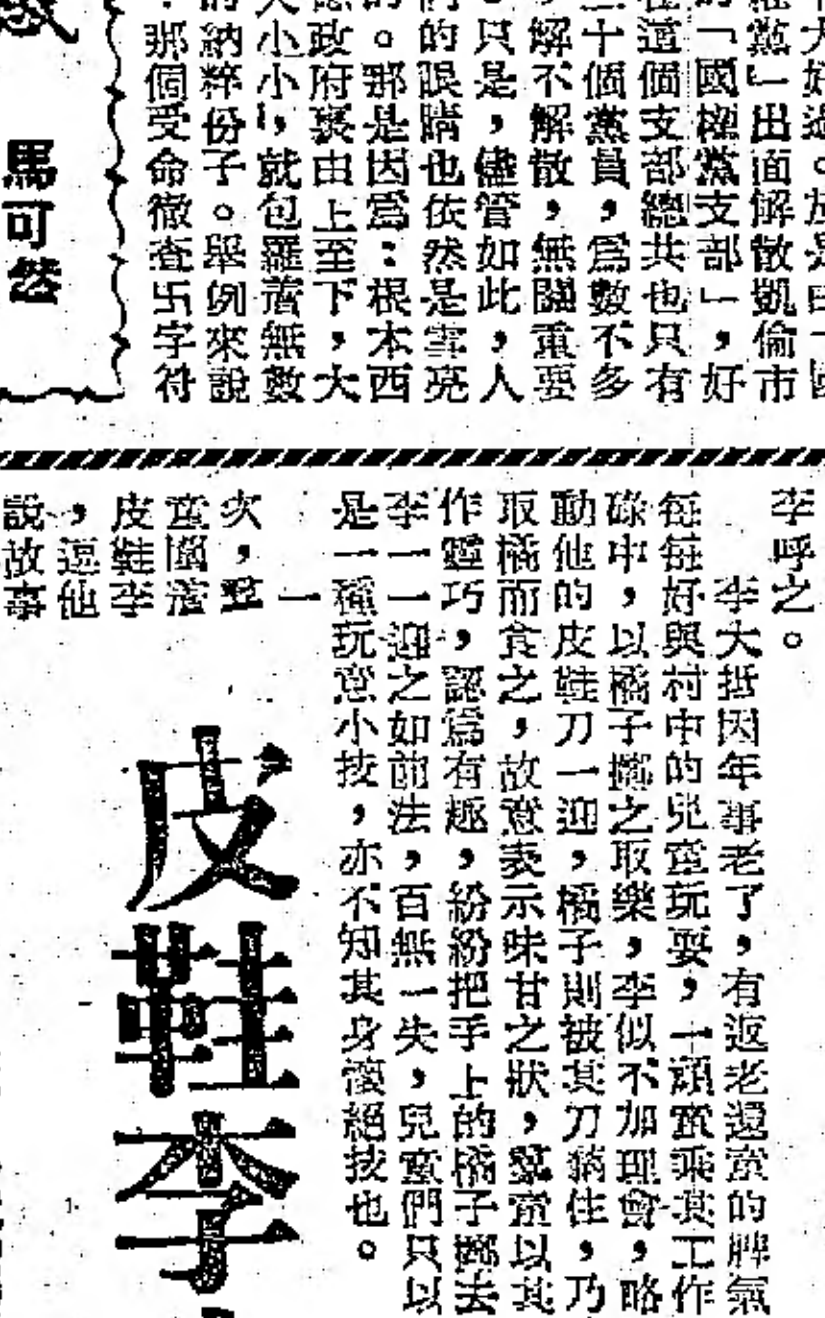 大好過。於是由「國
權黨」出面解散凱倫市
的「國權黨支部」,好
在這個支部總共也只有
十個黨員,爲數不多
,解不解散,無關重要
。只是,儘管如此,人
們的眼睛也依然是雪亮
的。那是因爲:根本西
德政府裏由上至下,大
大小小,就包羅着無數
的納粹份子。舉例來說
,那個受命徹查卐字符
馬可然
李呼之。
李大抵因年事老了,有返老還童的脾氣
每每好與村中的兒童玩耍,一頑童乘其工作
碌中,以橘子擲之取樂,李似不加理會,略
動他的皮鞋刀一迎,橘子則被其刀黐住,乃
取橘而食之,故意表示味甘之狀,羣童以其
作靈巧,認爲有趣,紛紛把手上的橘子擲去
李一一迎之如前法,百無一失,兒童們只以
是一種玩意小技,亦不知其身懷絕技也。
皮鞋李
一
次,羣
童圍着
皮鞋李
,逗他
說故事